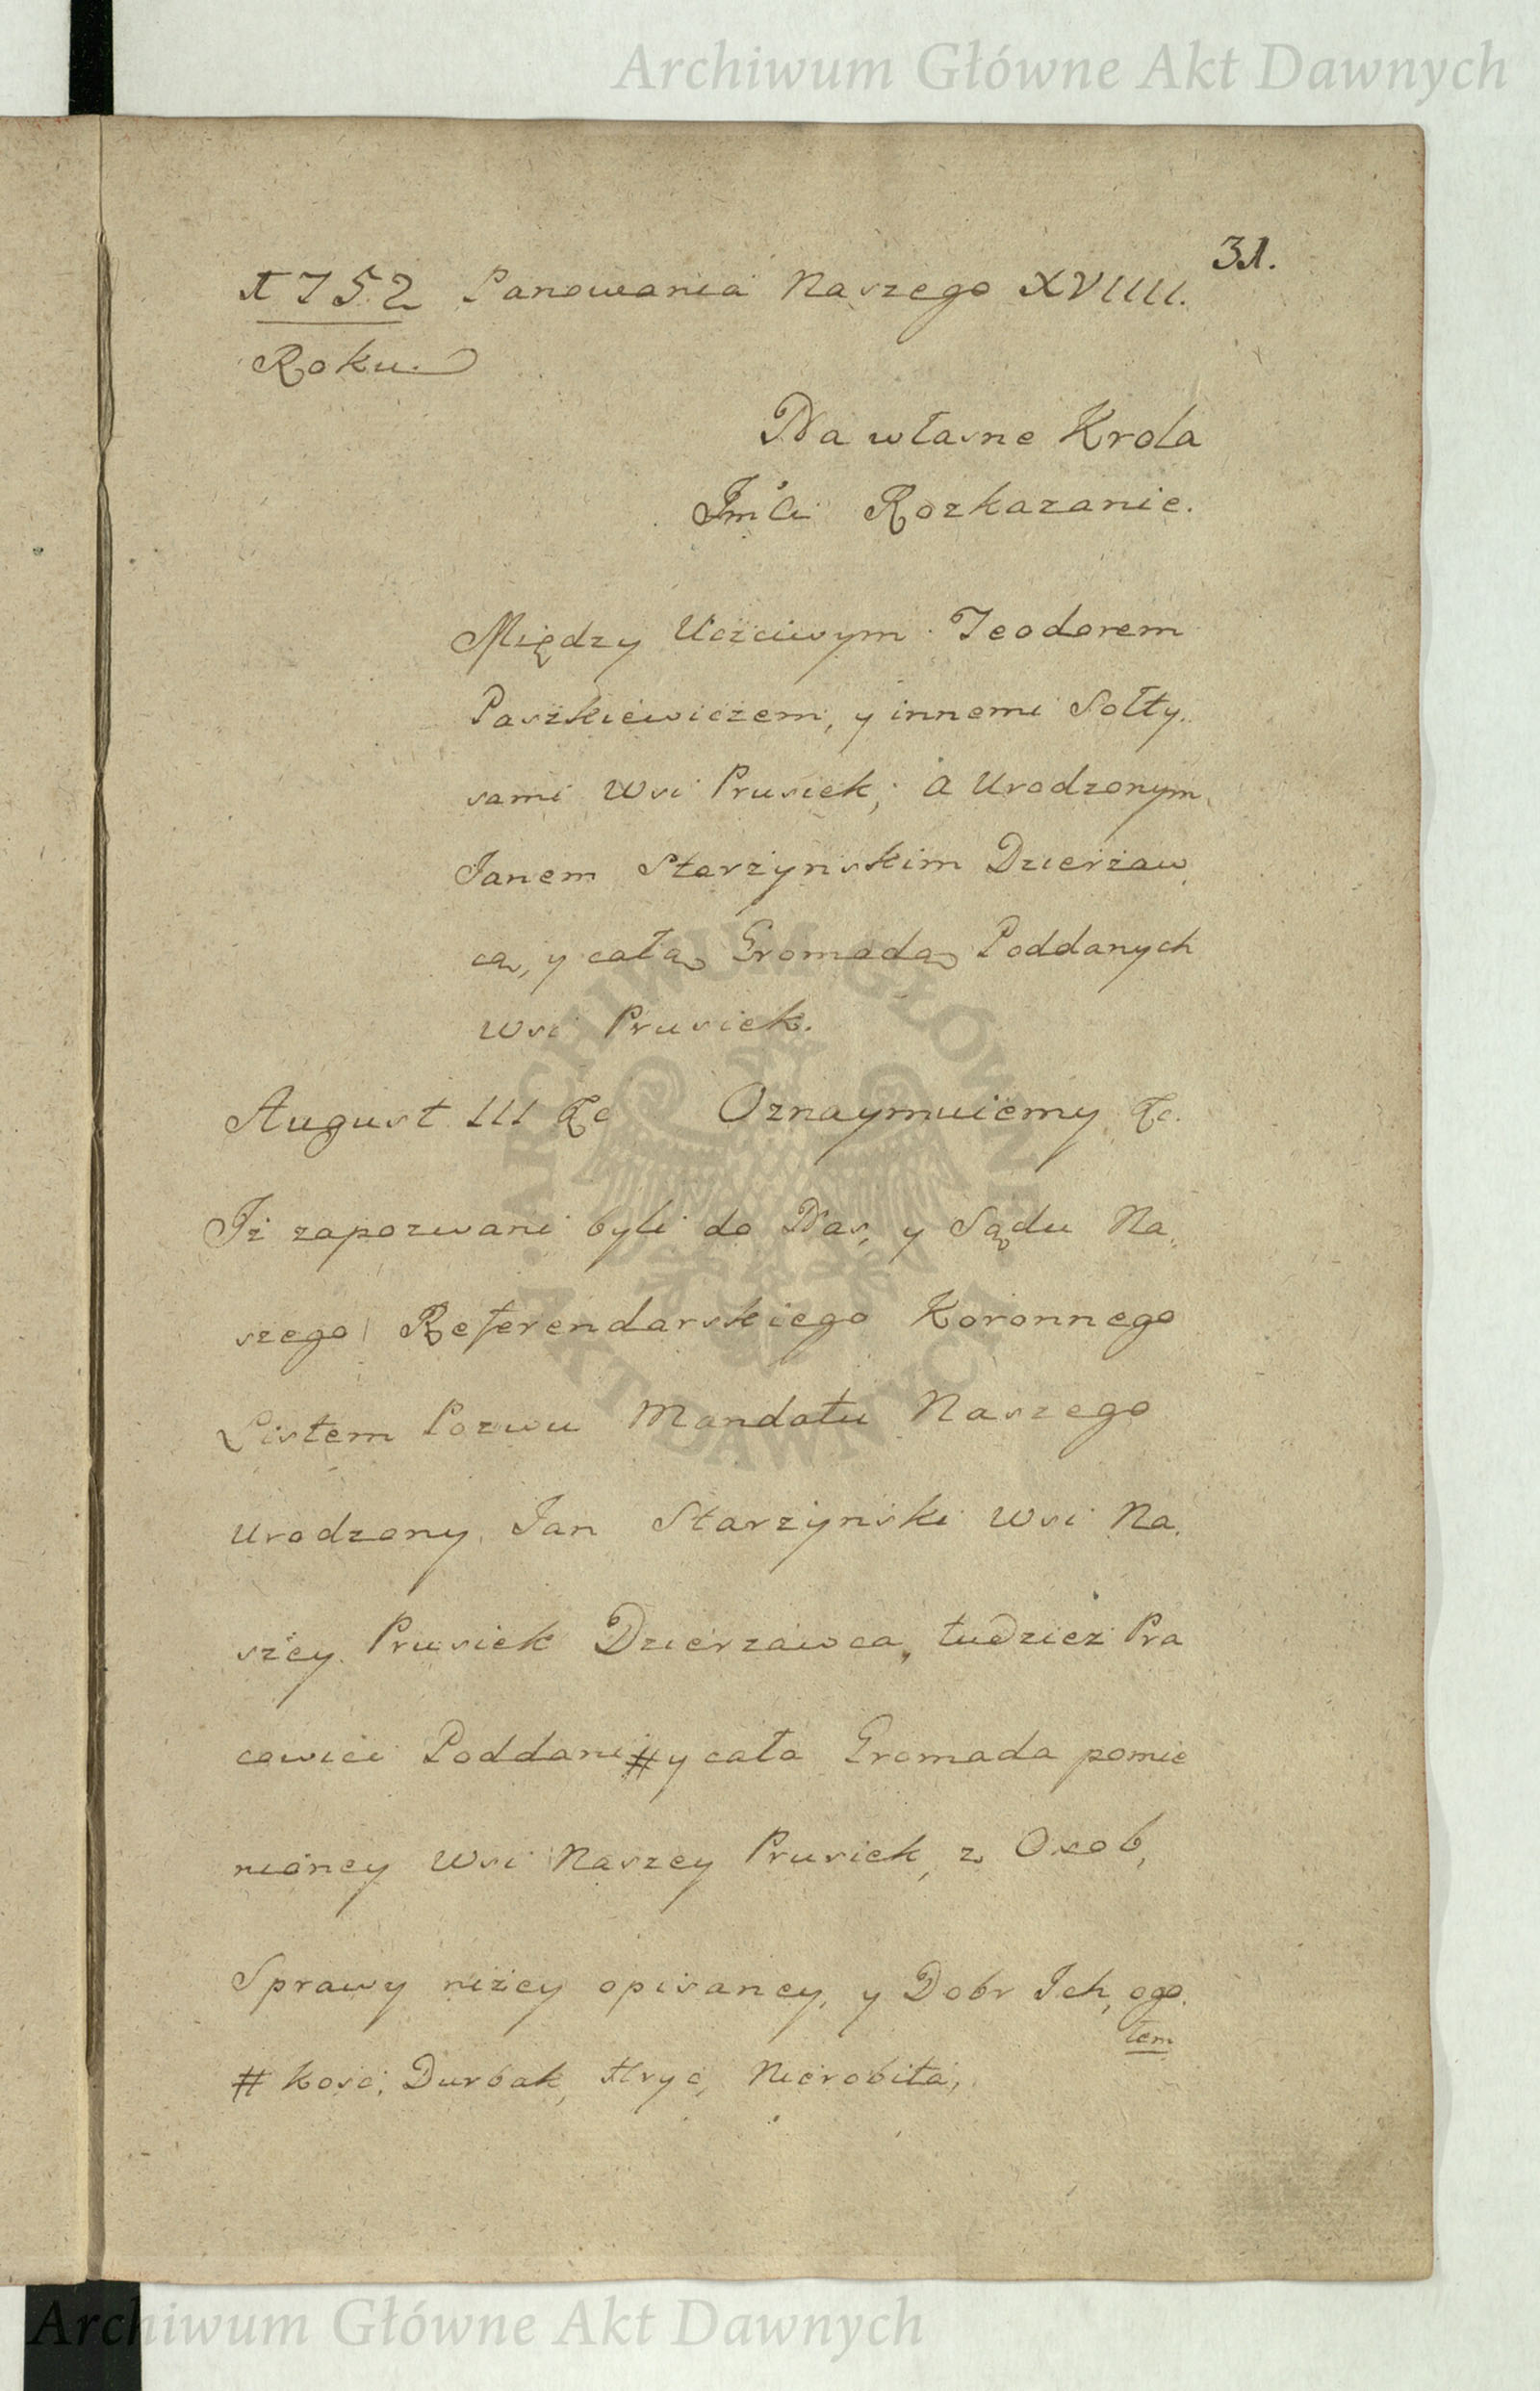 Archiwum Główne Akt Dawnych
31.
1752 Panowania Naszego XVIIII.
Roku.
Na własne Krola
Jm̃ći Rozkazanie.
Między Uczciwym Teodorem
Paszkiewiczem, y innemi Sołty„
sami Wsi Prusiek, a Urodzonym
Janem Starzyńskim Dzierżaw„
cą, y całą Gromadą Poddanych
Wsi Prusiek.
August III &c Oznaymuiemy &c.
Jż zapozwani byli do Nas, y Sądu Na„
szego Referendarskiego Koronnego
Listem Pozwu Mandatu Naszego
Urodzony Jan Starzyński Wsi Na„
szey Prusiek Dzierzawca, tudzież Pra
cowici Poddani # y cała Gromada pomie
nioney Wsi Naszey Prusiek, z Osob,
Sprawy niżey opisaney, y Dobr Jch, ogo„
łem
# Kość, Durbak, Hryć, Nierobiła,
ARCHIWUM GŁÓWNE · AKT DAWNYCH ·
Archiwum Główne Akt Dawnych